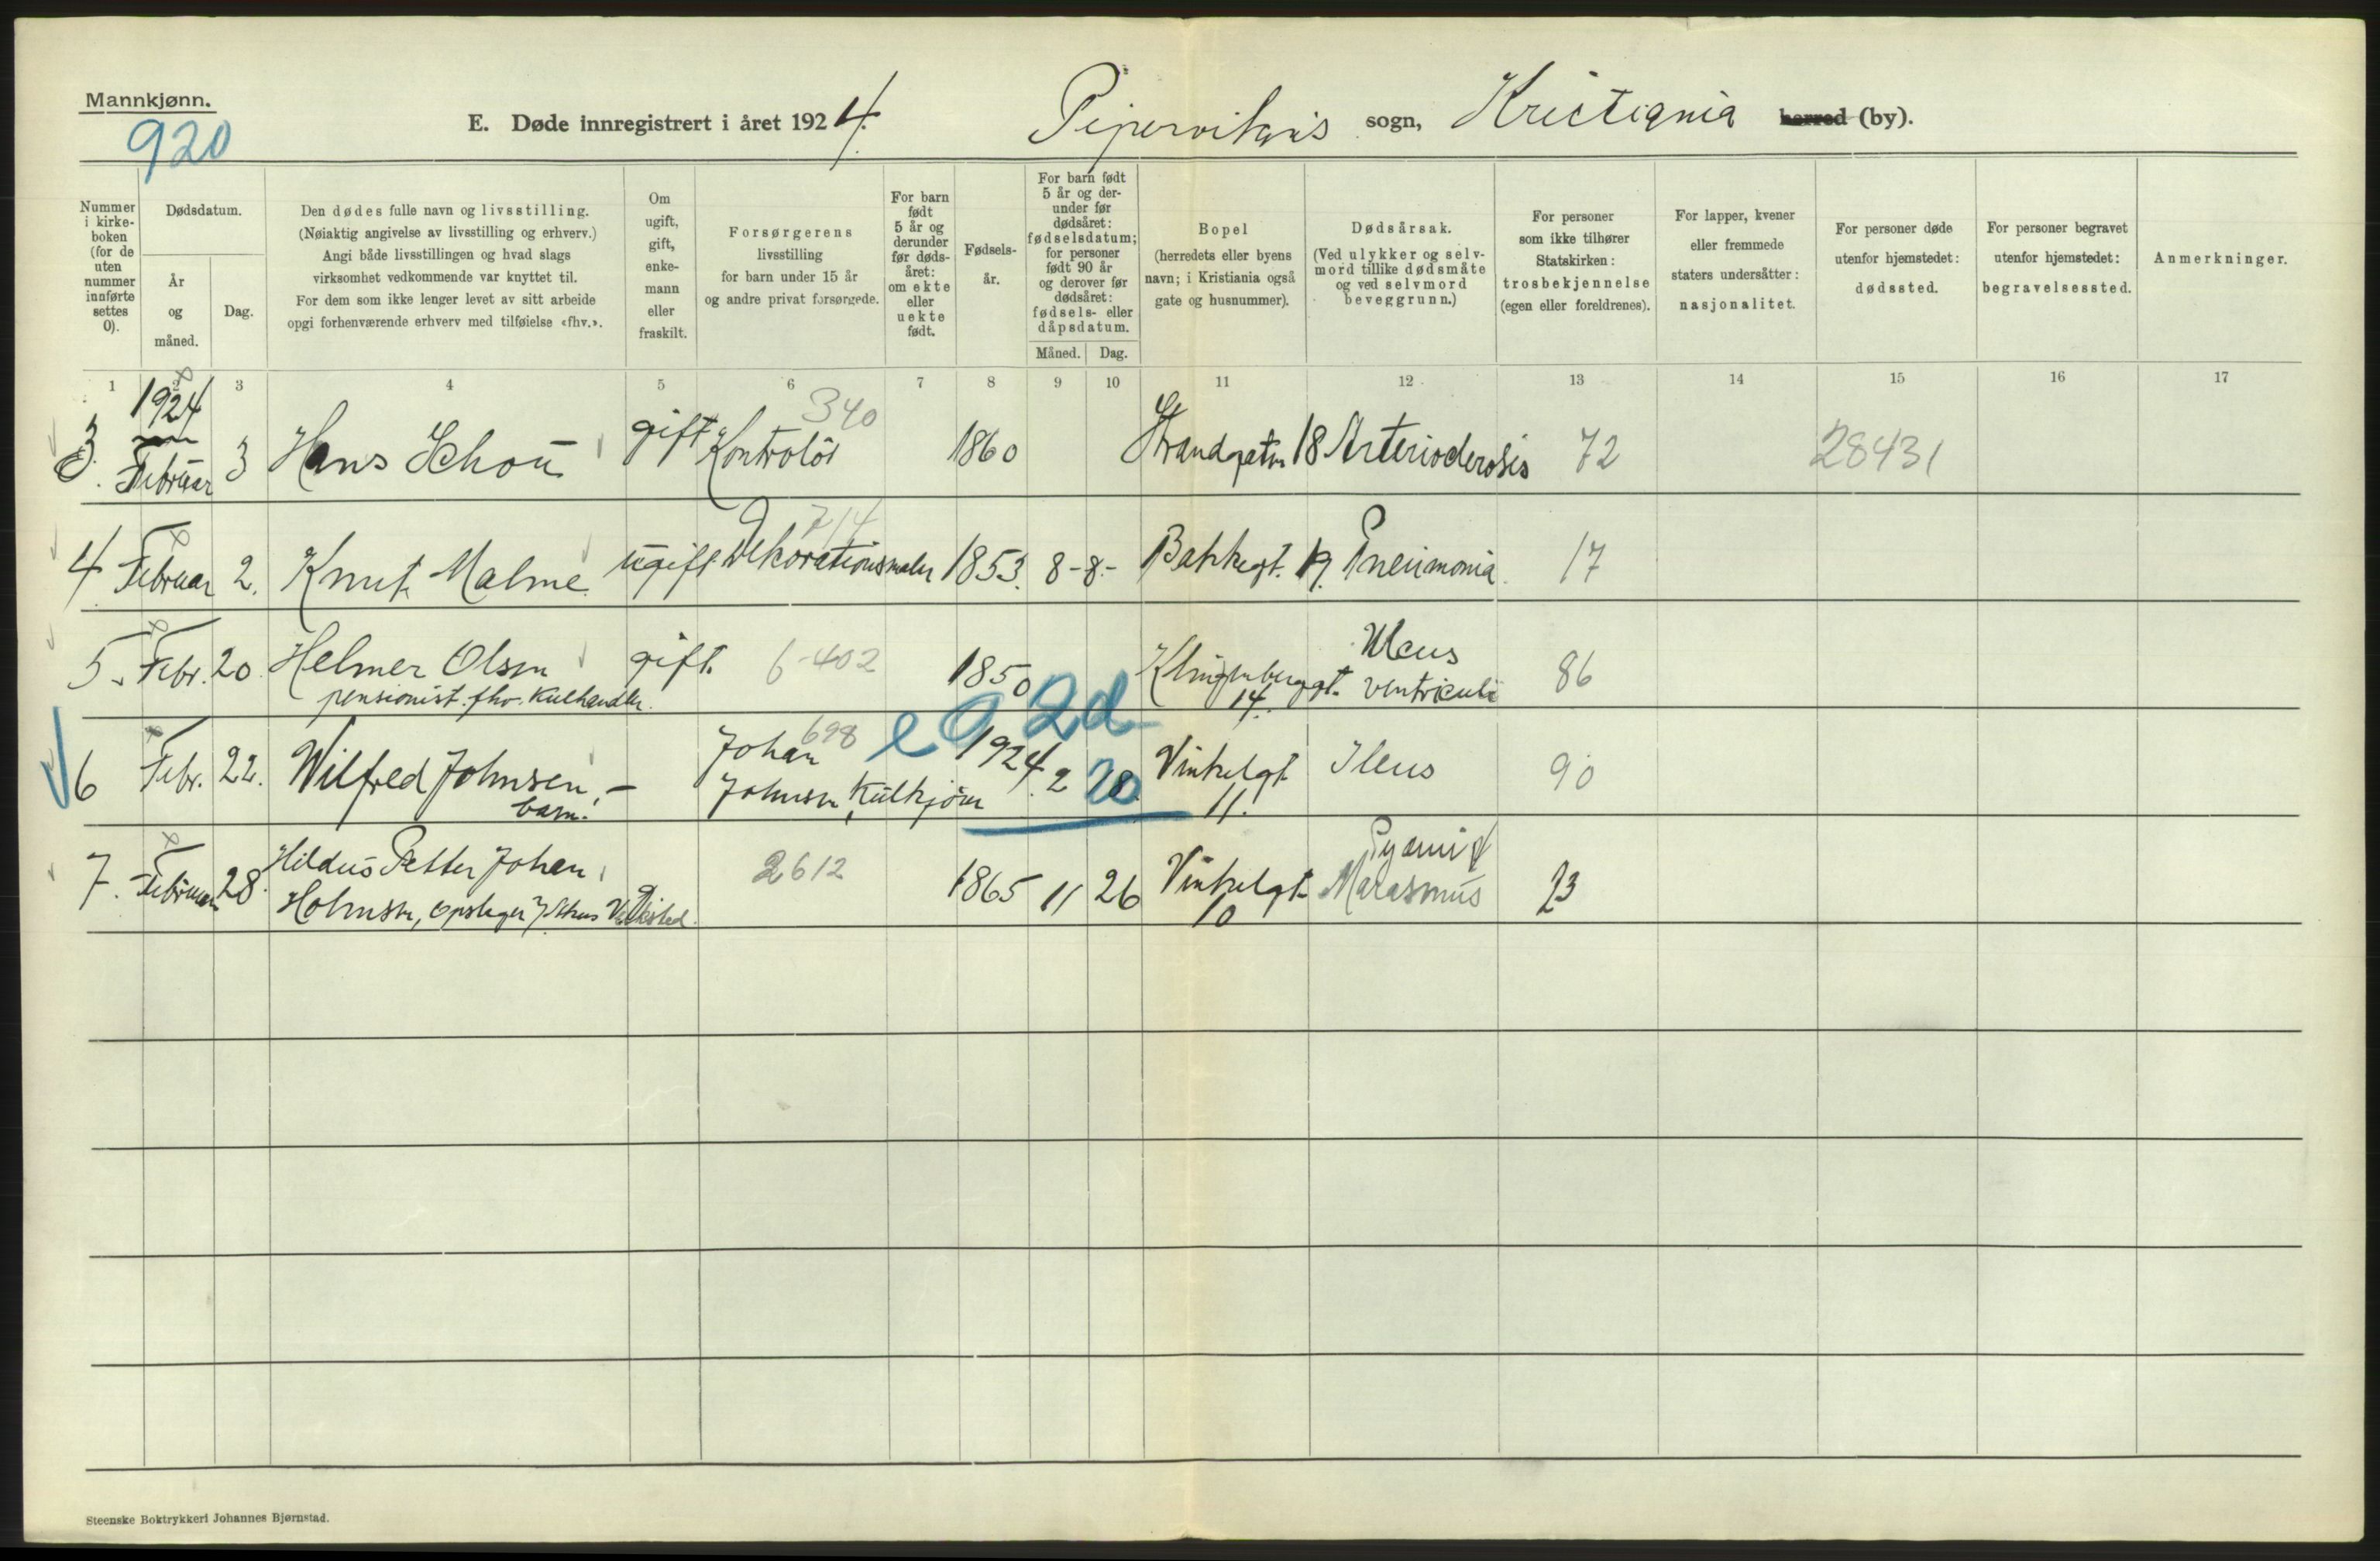 Mannkjønn.
920
E. Døde innregistrert i året 1924.
Pipervikens sogn, Kristiania herred (by).
Nummer i kirkeboken (for de uten nummer innførte settes 0).
Dødsdatum.
År og måned.
Dag.
Den dødes fulle navn og livsstilling.
(Nøiaktig angivelse av livsstilling og erhverv.)
Angi både livsstillingen og hvad slags
virksomhet vedkommende var knyttet til.
For dem som ikke lenger levet av sitt arbeide
opgi forhenværende erhverv med tilføielse «fhv.».
Om ugift, gift, enkemann eller fraskilt.
Forsørgerens
livsstilling
for barn under 15 år
og andre privat forsørgede.
For barn født 5 år og derunder før dødsåret: om ekte eller uekte født.
Fødselsår.
For barn født 5 år og derunder før dødsåret: fødselsdatum; for personer født 90 år og derover før dødsåret: fødsels- eller dåpsdatum.
Måned. Dag.
Bopel
(herredets eller byens
navn; i Kristiania også
gate og husnummer).
Dødsårsak.
(Ved ulykker og selvmord tillike dødsmåte og ved selvmord beveggrunn.)
For personer
som ikke tilhører
Statskirken:
trosbekjennelse
(egen eller foreldrenes).
For lapper, kvener
eller fremmede
staters undersåtter:
nasjonalitet.
For personer døde
utenfor hjemstedet:
dødssted.
For personer begravet
utenfor hjemstedet:
begravelsessted.
Anmerkninger.
1 2 3 4 5 6 7 8 9 10 11 12 13 14 15 16 17
1924
340
3. Februar 3 Hans Schou gift Kontrolør 1860 Strandgaten 18 Arteriosclerosis 72 28431
714
4. Februar 2. Knut Malme ugift Dekorationsmaler 1853. 8-8- Bakkegt. 19. Pneumonia 17
5. Febr. 20 Helmer Olsen gift 6-402 1850 Klingenberggt. Ulcus 86
pensionist. fhv. Kulhandler. 14. ventriculi
e 9 2d
6 Febr. 22. Wilfred Johnsen, - Johan 698 1924 2 20 Vinkelgt Ileus 90
barn. Johnsen, Kulkjører 11.
7. Februar 28. Hildus Petter Johan 2612 1865 11 26 Vinkelgt Pyämi 23
Holmsen, 10 Marasmus
Steenske Boktrykkeri Johannes Bjørnstad.